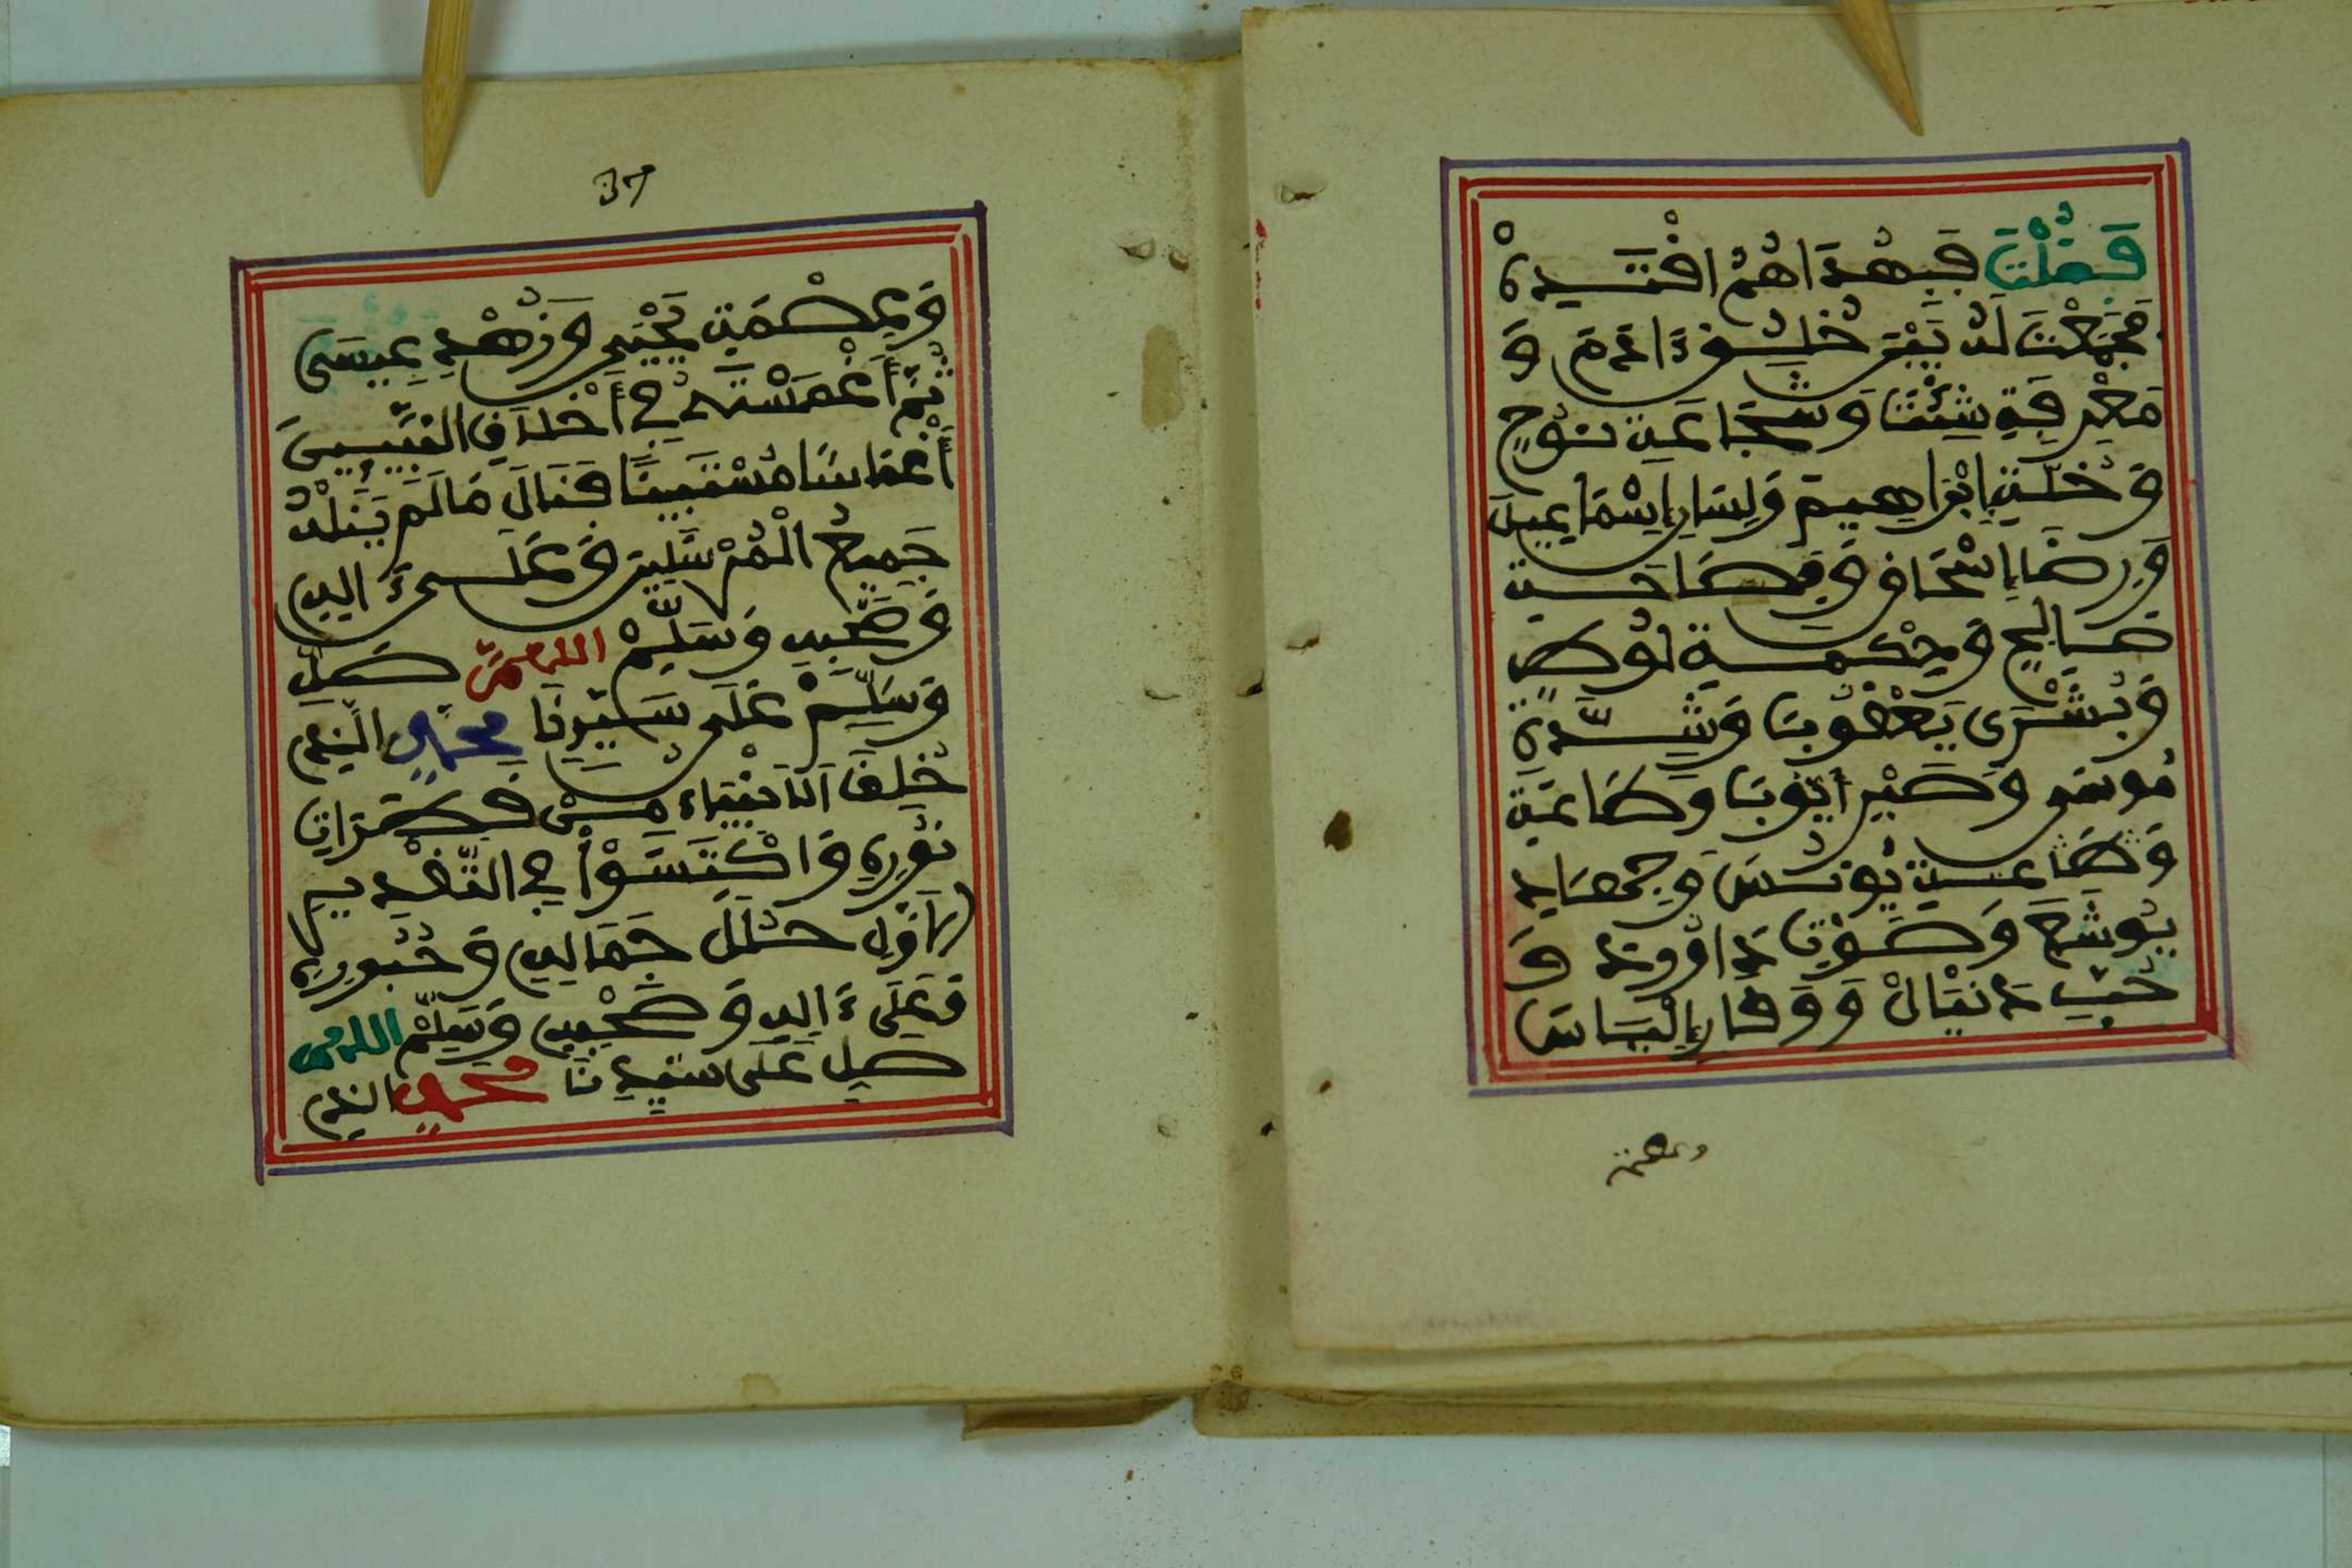 فَقُلْتَ فَبِهُدَاهُمُ اقْتَدِهْ
فَجَمَعْتَ لَهُ بَيْنَ خُلُقِ ءَادَمَ وَ
مَعْرِفَةِ شِيْثَ وَشَجَاعَةِ نُوحٍ
وَخُلَّةِ إِبْرَاهِيمَ وَلِسَانِ إِسْمَاعِيلَ
وَرِضَا إِسْحَاقَ وَفَصَاحَةِ
صَالِحٍ وَحِكْمَةِ لُوطٍ
وَبُشْرَى يَعْقُوبَ وَشِدَّةِ
مُوسَى وَصَبْرِ أَيُّوبَ وَطَاعَةِ
وَطَاعَةِ يُونُسَ وَجِهَادِ
يُوشَعَ وَصَوْتِ دَاوُودَ وَ
حُبِّ دَنْيَالَ وَوَقَارِ إِلْيَاسَ
وعصمة
37
وَعِصْمَةِ يَحْيَى وَزُهْدِ عِيسَى
ثُمَّ أَغْمَسْتَهُ فِي أَخْلَاقِ النَّبِيِّينَ
أَغْمَاسًا مُسْتَبِينًا فَنَالَ مَا لَمْ يَنَلْهُ
جَمِيعُ الْمُرْسَلِينَ وَعَلَى ءَالِهِ
وَصَحْبِهِ وَسَلِّمْ اللهم صَلِّ
وَسَلِّمْ عَلَى سَيِّدِنَا مُحَمَّدٍ الَّذِي
خُلِقَ الَانْبِيَاءُ مِنْ قَطَرَاتِ
نُورِهِ وَاكْتَسَوْا فِي التَّقْدِيمِ
لَهَا مِن حُلَلِ جَمَالِهِ وَحُبُورِهِ
وَعَلَى ءَالِهِ وَصَحْبِهِ وَسَلِّمْ اللهم
صل عَلَى سَيِّدِنَا محمد الذي